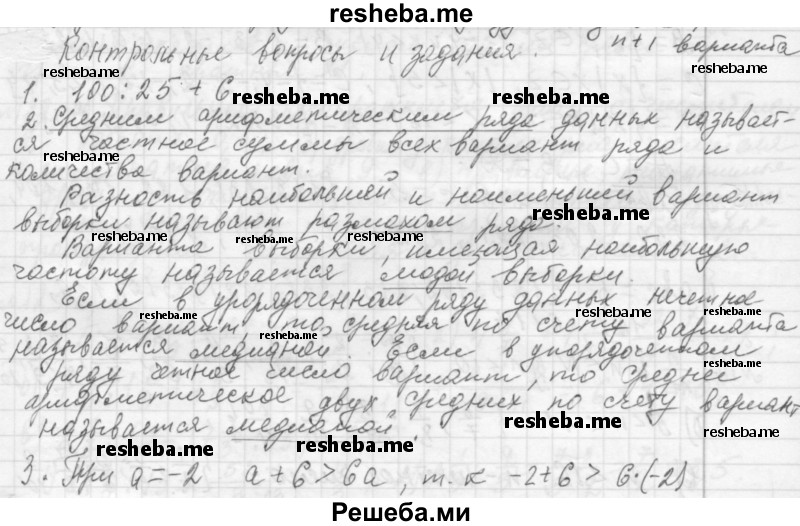 resheba.me
Контрольные вопросы и задания. n+1 варианта
resheba.me resheba.me
1. 100:25 + 6 resheba.me resheba.me
2. Средним арифметическим ряда данных называет-
ся частное суммы всех вариант ряда и
resheba.me
количества вариант.
Разность наибольшей и наименьшей вариант
resheba.me
выборки называют размахом ряда.
resheba.me resheba.me
Варианта выборки, имеющая наибольшую
частоту называется модой выборки.
Если в упорядоченном ряду данных нечетное
resheba.me resheba.me
число вариант, то средняя по счету варианта
resheba.me
называется медианой. Если в упорядоченном
resheba.me
ряду четное число вариант, то среднее
арифметическое двух средних по счету вариант
называется медианой.
resheba.me resheba.me resheba.me
3. При a=-2 a+6>6a, т.к -2+6 > 6·(-2)
Решеба.ми